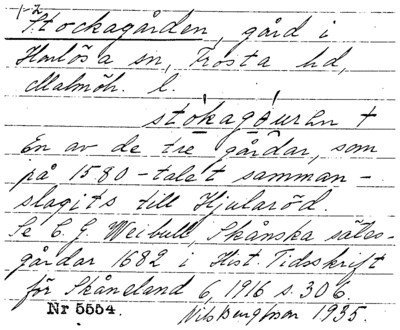 1-2
Stockagården, gård i
Harlösa sn, Frosta hd,
Malmöh. l.
stokagåurɛn +
En av de tre gårdar, som
på 1580-talet samman-
slagits till Hjularöd.
Se C. G. Weibull, Skånska sätes-
gårdar 1682 i Hist. Tidsskrift
för Skåneland 6, 1916 s. 306.
Nr 5554. Nils Bengtsson 1935.